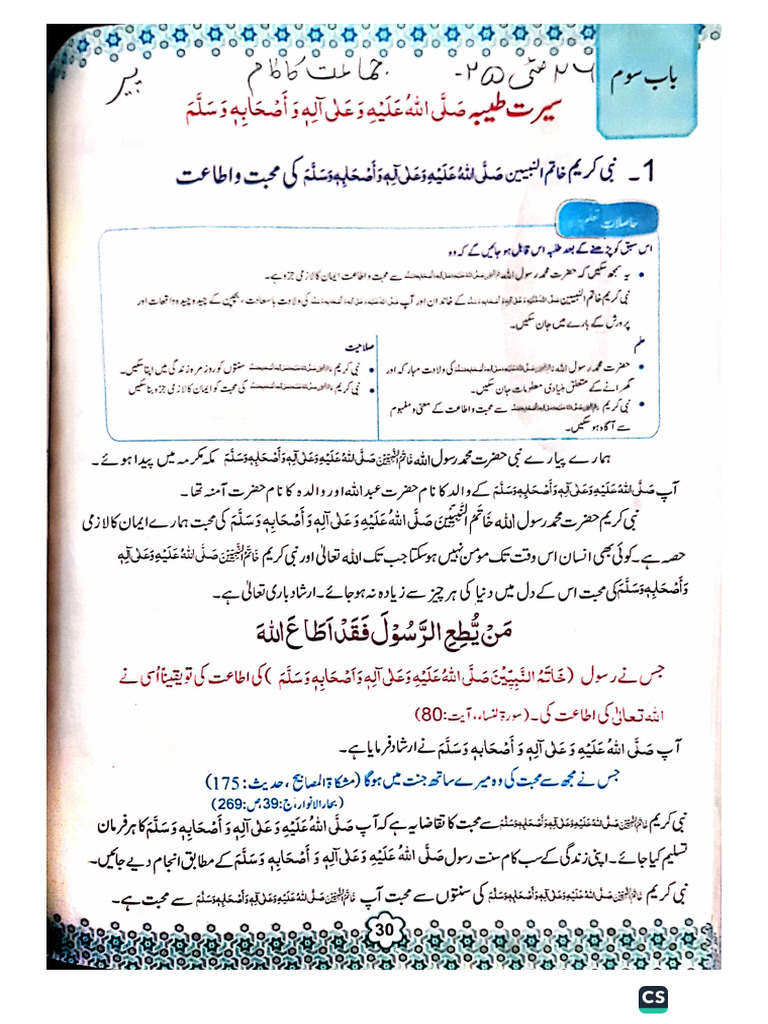 باب سوم
۲۶ مئی ۲۵ء
جماعت کا کام
پیر
سیرت طیبہ صَلَّی اللهُ عَلَیْهِ وَعَلٰی آلِهٖ وَاَصْحَابِهٖ وَسَلَّمَ
1۔ نبی کریم خاتم النبیین صَلَّی اللهُ عَلَیْهِ وَعَلٰی آلِهٖ وَاَصْحَابِهٖ وَسَلَّمَ کی محبت و اطاعت
حاصلات تعلم
اس سبق کو پڑھنے کے بعد طلبہ اس قابل ہو جائیں گے کہ وہ
• یہ سمجھ سکیں کہ حضرت محمد رسول الله سے محبت و اطاعت ایمان کا لازمی جزو ہے۔
نبی کریم خاتم النبیین کے خاندان اور آپ کی ولادت باسعادت، بچپن کے چیدہ چیدہ واقعات اور
پرورش کے بارے میں جان سکیں۔
علم
• حضرت محمد رسول الله کی ولادت مبارکہ اور
گھرانے کے متعلق بنیادی معلومات جان سکیں۔
• نبی کریم سے محبت و اطاعت کے معنی و مفہوم
سے آگاہ ہو سکیں۔
صلاحیت
• نبی کریم سنتوں کو روزمرہ زندگی میں اپنا سکیں۔
• نبی کریم کی محبت کو ایمان کا لازمی جزو بنا سکیں
ہمارے پیارے نبی حضرت محمد رسول الله خَاتَمُ النَّبِیّٖنَ صَلَّی اللهُ عَلَیْهِ وَعَلٰی آلِهٖ وَاَصْحَابِهٖ وَسَلَّمَ مکہ مکرمہ میں پیدا ہوئے۔
آپ صَلَّی اللهُ عَلَیْهِ وَعَلٰی آلِهٖ وَاَصْحَابِهٖ وَسَلَّمَ کے والد کا نام حضرت عبد الله اور والدہ کا نام حضرت آمنہ تھا۔
نبی کریم حضرت محمد رسول الله خَاتَمُ النَّبِیّٖنَ صَلَّی اللهُ عَلَیْهِ وَعَلٰی آلِهٖ وَاَصْحَابِهٖ وَسَلَّمَ کی محبت ہمارے ایمان کا لازمی
حصہ ہے۔ کوئی بھی انسان اس وقت تک مومن نہیں ہو سکتا جب تک الله تعالیٰ اور نبی کریم خَاتَمُ النَّبِیّٖنَ صَلَّی اللهُ عَلَیْهِ وَعَلٰی آلِهٖ
وَاَصْحَابِهٖ وَسَلَّمَ کی محبت اس کے دل میں دنیا کی ہر چیز سے زیادہ نہ ہو جائے۔ ارشاد باری تعالیٰ ہے۔
مَنْ یُّطِعِ الرَّسُوْلَ فَقَدْ اَطَاعَ اللهَ
جس نے رسول (خَاتَمُ النَّبِیِّیْنَ صَلَّی اللهُ عَلَیْهِ وَعَلٰی آلِهٖ وَاَصْحَابِهٖ وَسَلَّمَ) کی اطاعت کی تو یقیناً اُسی نے
الله تعالیٰ کی اطاعت کی۔ (سورۃ النساء، آیت:80)
آپ صَلَّی اللهُ عَلَیْهِ وَعَلٰی آلِهٖ وَ اَصْحَابِهٖ وَسَلَّمَ نے ارشاد فرمایا ہے۔
جس نے مجھ سے محبت کی وہ میرے ساتھ جنت میں ہوگا (مشکاۃ المصابیح، حدیث:175)
(بحار الانوار، ج:39 ص:269)
نبی کریم خَاتَمُ النَّبِیّٖنَ صَلَّی اللهُ عَلَیْهِ وَعَلٰی آلِهٖ وَاَصْحَابِهٖ وَسَلَّمَ سے محبت کا تقاضا یہ ہے کہ آپ صَلَّی اللهُ عَلَیْهِ وَعَلٰی آلِهٖ وَ اَصْحَابِهٖ وَسَلَّمَ کا ہر فرمان
تسلیم کیا جائے۔ اپنی زندگی کے سب کام سنت رسول صَلَّی اللهُ عَلَیْهِ وَعَلٰی آلِهٖ وَ اَصْحَابِهٖ وَسَلَّمَ کے مطابق انجام دیے جائیں۔
نبی کریم خَاتَمُ النَّبِیّٖنَ صَلَّی اللهُ عَلَیْهِ وَعَلٰی آلِهٖ وَاَصْحَابِهٖ وَسَلَّمَ کی سنتوں سے محبت آپ خَاتَمُ النَّبِیّٖنَ صَلَّی اللهُ عَلَیْهِ وَعَلٰی آلِهٖ وَاَصْحَابِهٖ وَسَلَّمَ سے محبت ہے۔
30
CS